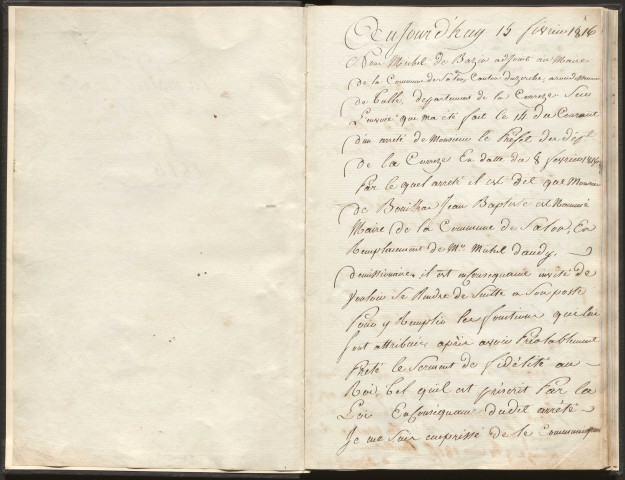 Aujourd'huy 15 février 1816
Nous Michel de Bazin adjoint au Maire
de la Commune de Salon, Canton duzerche, arondissement
de tulle, département de la Correze Sur
L'envoie que ma été fait le 14 du Courant
d'un arrété de Monsieur le Préfet du dept
De la Correze En datte du 8 février 1816
Par le quel arreté il est dit que Monsieur
de Jean Baptiste est Nommé
Maire de la Commune de Salon, En
Remplacement de Mr. Michel Daudy.
demissionaire, il est enConsequance invité de
Vouloir Se Rendre de Suitte a Son poste
Pour y Remplir les fonctions que lui
sont attribuées après avoir Préalablement
Prété le Serment de fidélité au
Roi, tel qu'il est préscrit Par la
Loi EnConséquance dudit arrété
Je me Suis empréssé de le